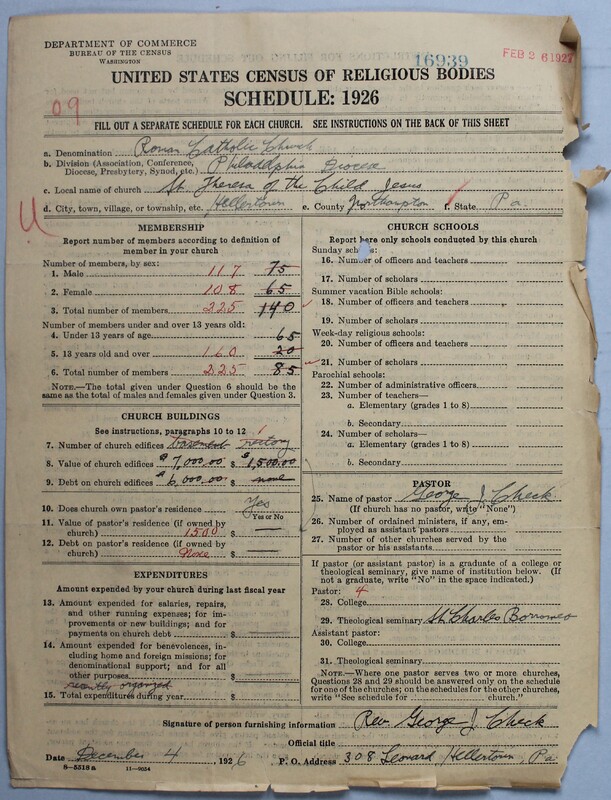 DEPARTMENT OF COMMERCE
BUREAU OF THE CENSUS
WASHINGTON
16939
FEB 2 6 1927
UNITED STATES CENSUS OF RELIGIOUS BODIES
SCHEDULE: 1926
09
FILL OUT A SEPARATE SCHEDULE FOR EACH CHURCH. SEE INSTRUCTIONS ON THE BACK OF THIS SHEET
a. Denomination Roman Catholic Church
b. Division (Association, Conference, Diocese, Presbytery, Synod, etc.) Philadelphia Diocese
c. Local name of church St. Theresa of the Child Jesus
d. City, town, village, or township, etc. Hellertown e. County Northampton f. State Pa.
MEMBERSHIP
Report number of members according to definition of
member in your church
Number of members, by sex:
1. Male 117 75
2. Female 108 65
3. Total number of members 225 140
Number of members under and over 13 years old:
4. Under 13 years of age 65
5. 13 years old and over 160 20
6. Total number of members 225 85
NOTE.—The total given under Question 6 should be
the same as the total of males and females given under Question 3.
CHURCH BUILDINGS
See instructions, paragraphs 10 to 12
7. Number of church edifices basement rectory 1
8. Value of church edifices $7,000.00 $ $1,500.00
9. Debt on church edifices $6,000.00 $ none
10. Does church own pastor's residence Yes
Yes or No
11. Value of pastor's residence (if owned by
church) 1500 $ —
12. Debt on pastor's residence (if owned by
church) None $ —
EXPENDITURES
Amount expended by your church during last fiscal year
13. Amount expended for salaries, repairs,
and other running expenses; for im-
provements or new buildings; and for
payments on church debt $ —
14. Amount expended for benevolences,
including home and foreign missions; for
denominational support; and for all
other purposes $ —
recently organized
15. Total expenditures during year $ —
CHURCH SCHOOLS
Report here only schools conducted by this church
Sunday schools:
16. Number of officers and teachers
17. Number of scholars
Summer vacation Bible schools:
18. Number of officers and teachers
19. Number of scholars
Week-day religious schools:
20. Number of officers and teachers
21. Number of scholars
Parochial schools:
22. Number of administrative officers
23. Number of teachers—
a. Elementary (grades 1 to 8)
b. Secondary
24. Number of scholars—
a. Elementary (grades 1 to 8)
b. Secondary
PASTOR
25. Name of pastor George J. Check
(If church has no pastor, write "None")
26. Number of ordained ministers, if any, em-
ployed as assistant pastors
27. Number of other churches served by the
pastor or his assistants
If pastor (or assistant pastor) is a graduate of a college or
theological seminary, give name of institution below. (If
not a graduate, write "No" in the space indicated.)
Pastor: 4
28. College
29. Theological seminary St. Charles Borromeo
Assistant pastor:
30. College
31. Theological seminary
NOTE.—Where one pastor serves two or more churches,
Questions 28 and 29 should be answered only on the schedule
for one of the churches; on the schedules for the other churches,
write "See schedule for church."
Signature of person furnishing information Rev. George J. Check
Official title
Date December 4, 1926 P. O. Address 308 Leonard Hellertown, Pa
8—5518 a 11—9034